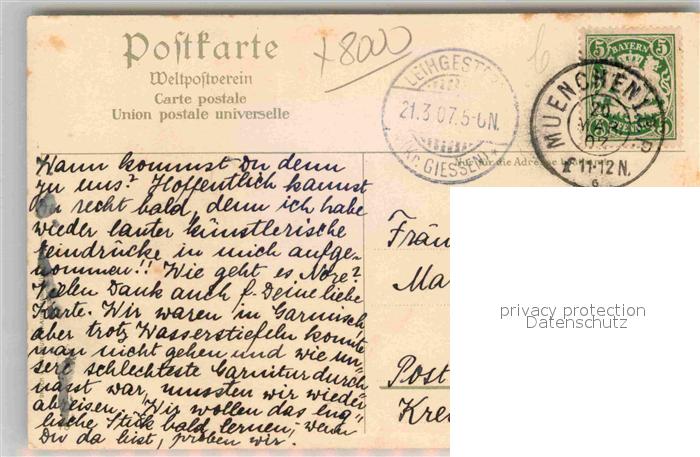 Postkarte
Weltpostverein
Carte postale
Union postale universelle
+8000
LEIHGESTERN
21.3.07.5-6N.
(KR. GIESSEN)
5 BAYERN 5
PFENNIG
MUENCHEN
11-12 N.
Nur für die Adresse
Wann kommst Du denn
zu uns? Hoffentlich kannst
Du recht bald, denn ich habe
wieder lauter künstlerische
Eindrücke in mich aufge-
nommen!! Wie geht es
Vielen Dank auch f. Deine liebe
Karte. Wir waren in Garmisch,
aber trotz Wasserstiefeln konnte
man nicht gehen und wie un-
sere schlechteste Garnitur durch
nasst war, mussten wir wieder
abreisen. Wir wollen das eng-
lische Stück bald lernen, wenn
Du da bist, proben wir.
Fräu
Ma
Post
Kre
privacy protection
Datenschutz